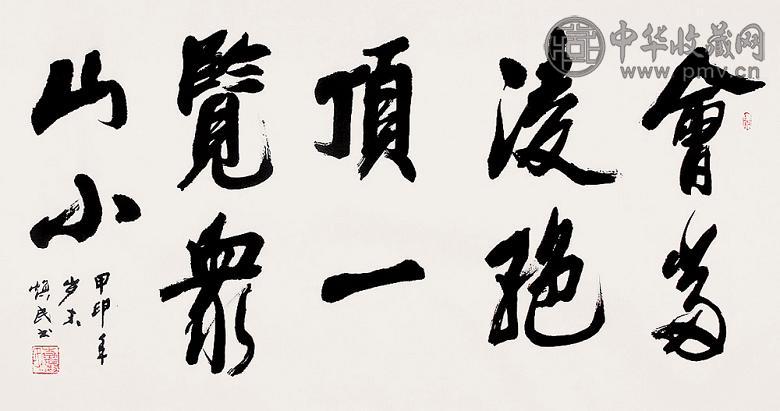 中华收藏网
www.pmv.cn
會當
淩絶
頂一
覽衆
山小
甲 年
岁末
慎民书